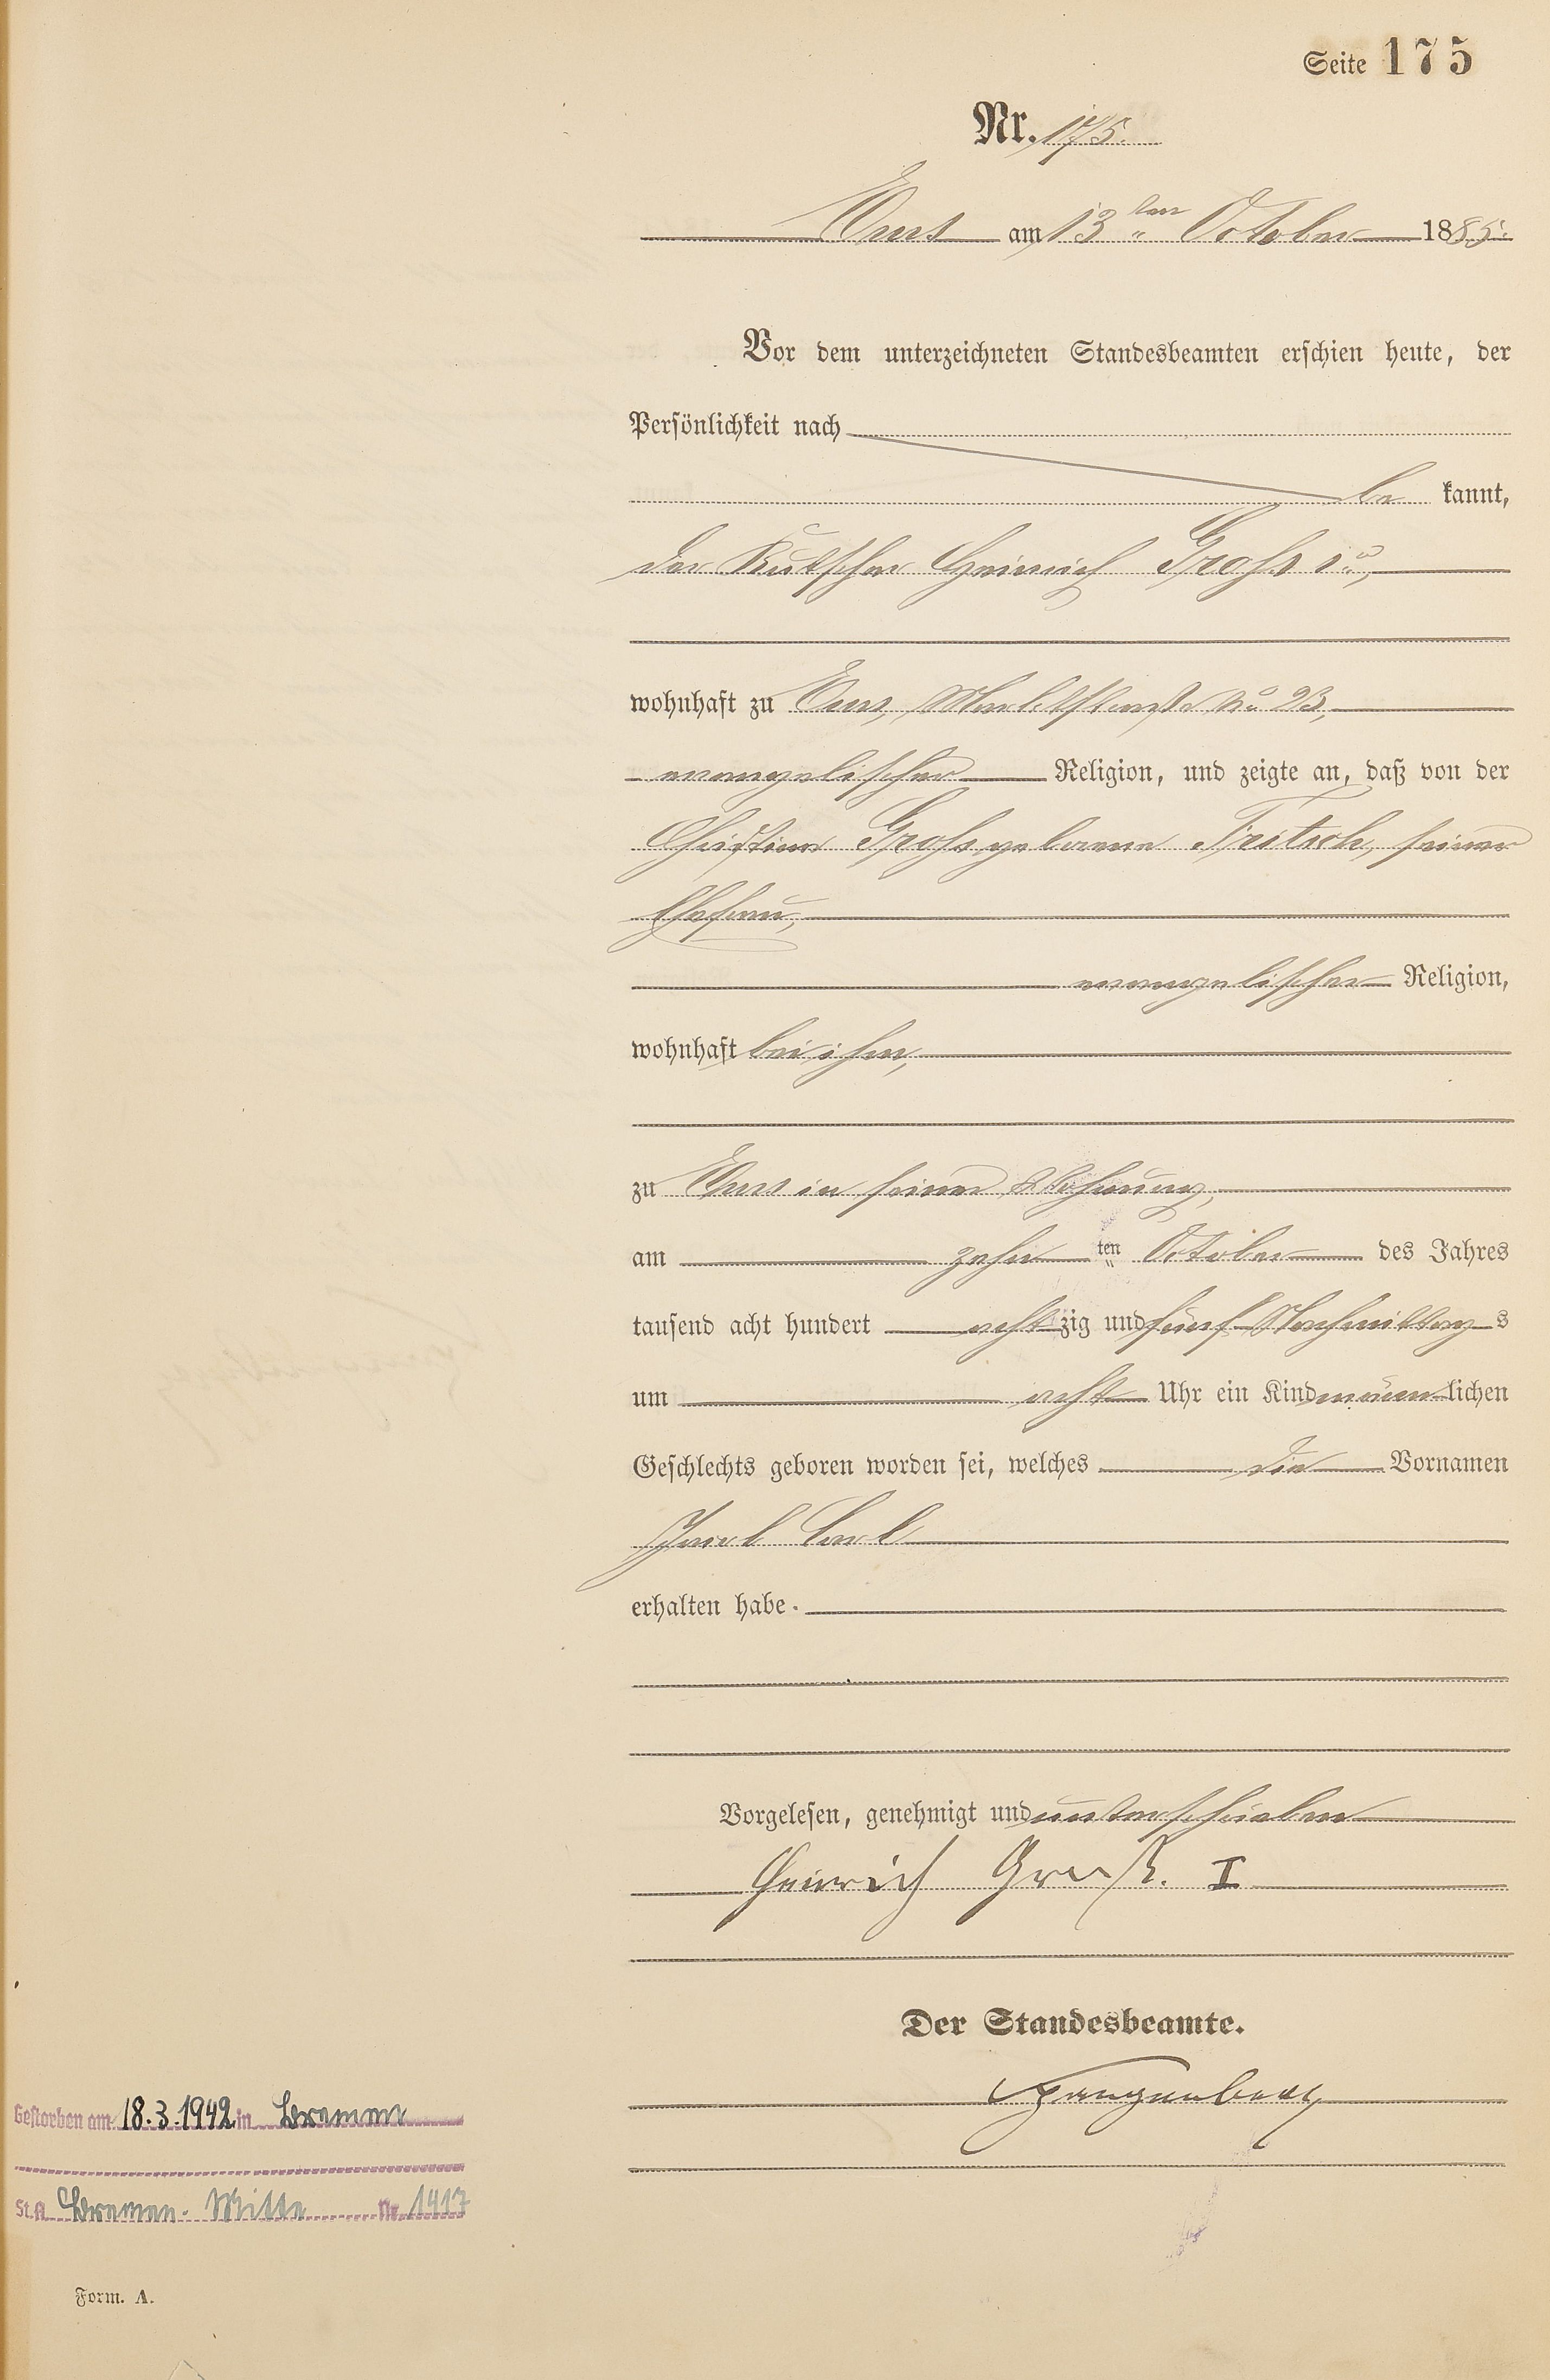 Seite 175
Nr. 175.
Ems am 13ten October 1885.
Vor dem unterzeichneten Standesbeamten erschien heute, der
Persönlichkeit nach
be kannt,
der Kutscher Heinrich Groß 1r,
wohnhaft zu Ems, Marktstraße No 23,
evangelischer Religion, und zeigte an, daß von der
Christine Groß geborene Fritsch, seiner
Ehefrau,
evangelischer Religion,
wohnhaft bei ihm,
zu Ems in seiner Wohnung,
am zehn ten October des Jahres
tausend acht hundert acht zig und fünf Nachmittag s
um acht Uhr ein Kind männ lichen
Geschlechts geboren worden sei, welches die Vornamen
Karl
erhalten habe.
Vorgelesen, genehmigt und unterschrieben
Heinrich Groß. I
Der Standesbeamte.
Spangenberg
Gestorben am 18.3.1942 in Bremen
St.A. Bremen-Mitte Nr. 1417
Form. A.